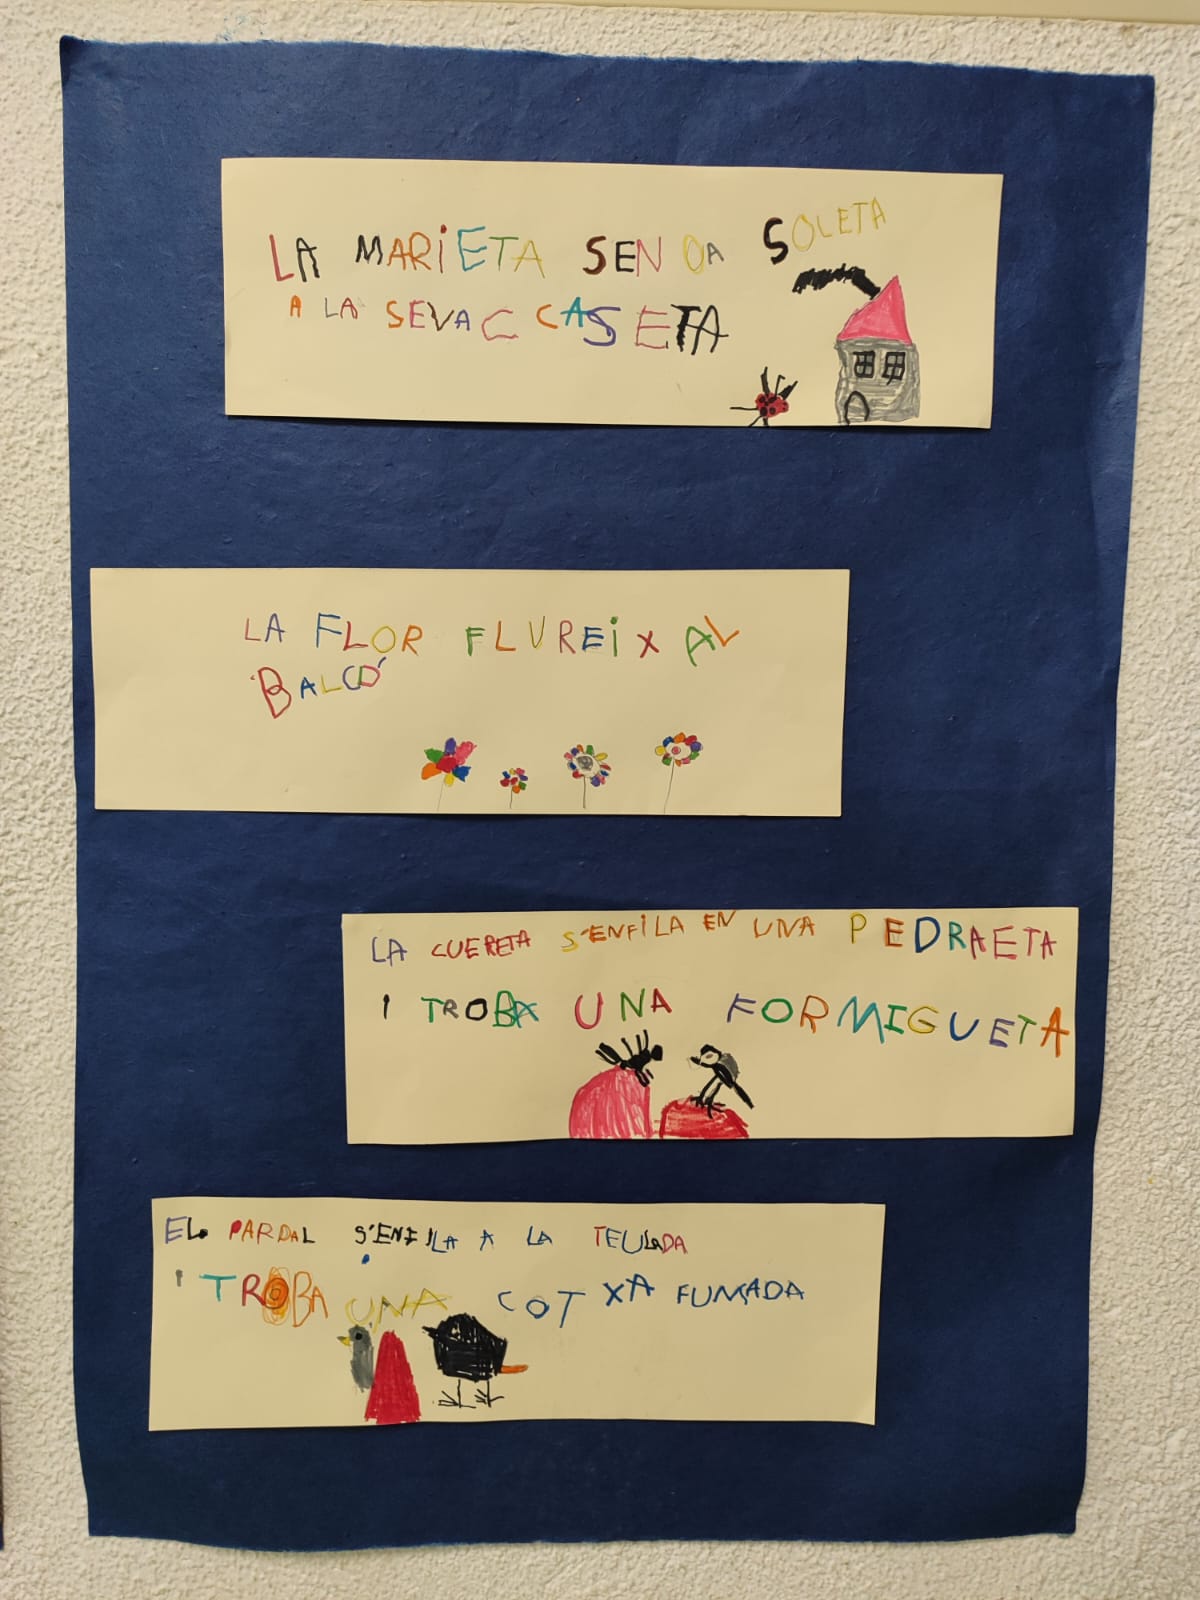 LA MARiETA SEN OA SOLETA
A LA SEVA C CASETA
LA FLOR FLUREiX AL
BALCÓ
LA CUERETA S'ENFiLA EN UNA PEDRAETA
I TROBA UNA FORMIGUETA
EL PARDAL S'ENFILA A LA TEULADA
I TROBA UNA COTXA FUMADA